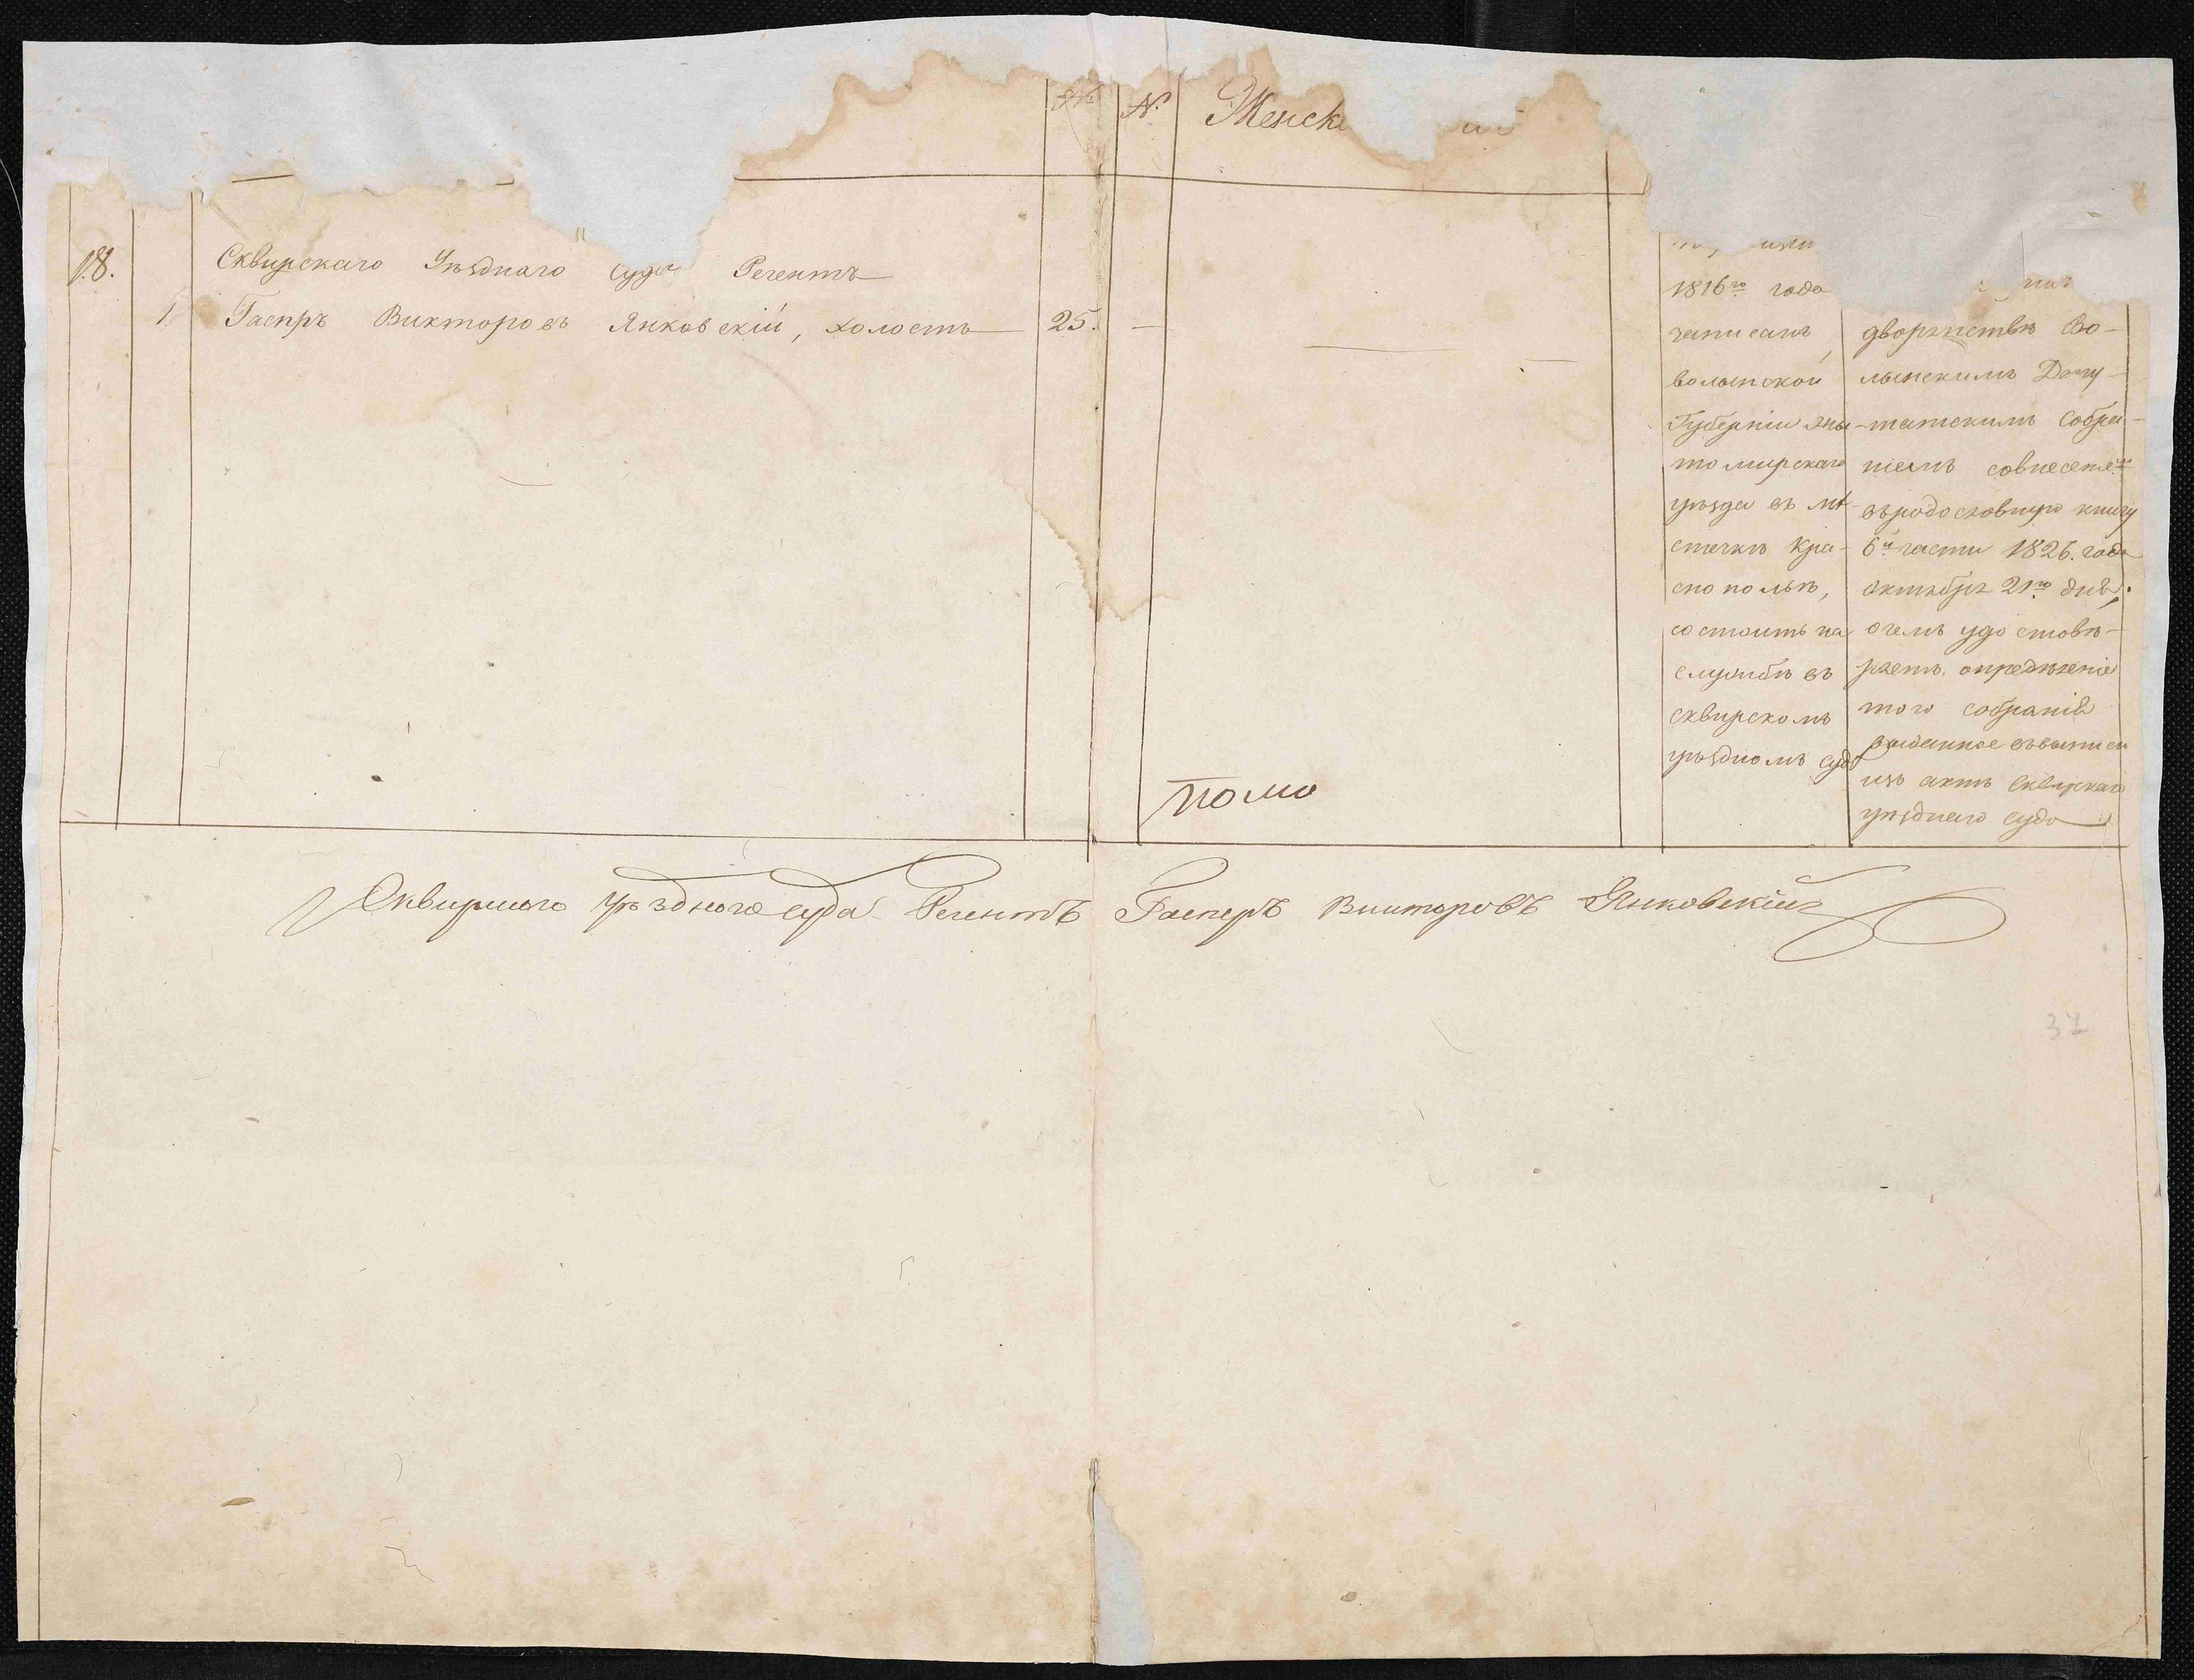 № № Женск ій
18.
Сквирскаго Уѣзднаго Суда Регентъ
1 Гаспръ Викторовъ Янковскій, холостъ 25. —
или
1816го года
записанъ
волынской
Губерніи жы-
томирскаго
уѣзда въ мѣ-
стечкѣ Кра-
снополѣ,
состоитъ на
службѣ въ
сквирскомъ
уѣздномъ судѣ
дворянствѣ Во-
лынскимъ Депу-
-татскимъ Собра-
ніемъ совнесеніемъ
въ родословную книгу
6й части 1826. года
октября 21го дня,
о чемъ удостовѣ-
ряетъ опредѣленіе
того собранія
выданное въ выписи
изъ актъ Сквирскаго
уѣзднаго суда
помо
Сквирского уѣздного суда Регентъ Гасперъ Викторовъ Янковскій
37